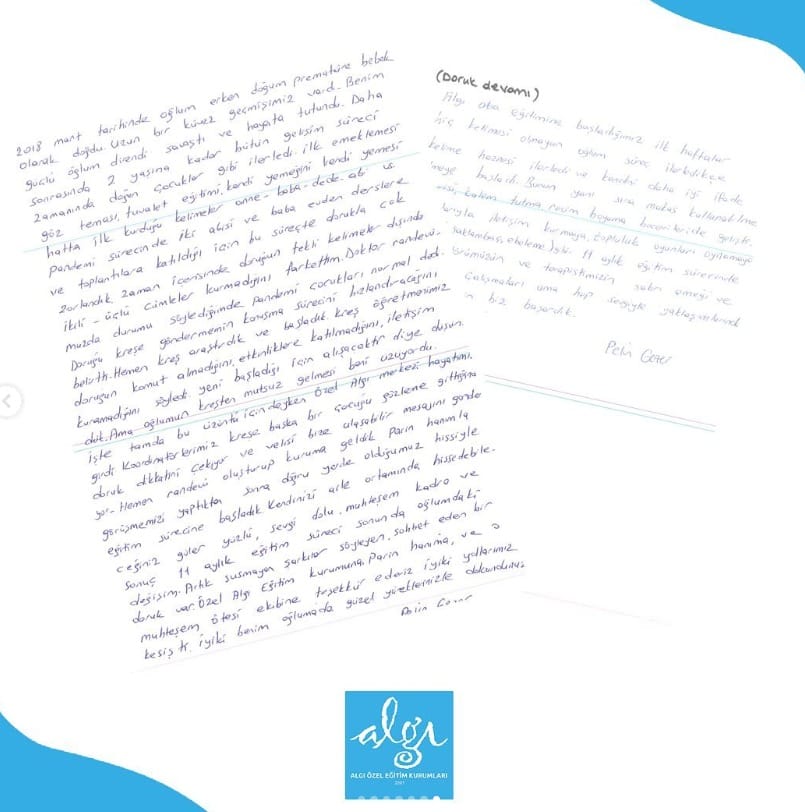 2018 mart tarihinde oğlum erken doğum prematüre bebek
olarak doğdu. Uzun bir küvez geçmişimiz vardı. Benim
güçlü oğlum direndi savaştı ve hayata tutundu. Daha
sonrasında 2 yaşına kadar bütün gelişim süreci
zamanında doğan çocuklar gibi ilerledi. İlk emeklemesi
göz teması, tuvalet eğitimi, kendi yemeğini kendi yemesi
hatta ilk kurduğu kelimeler anne-baba-dede-abi
Pandemi sürecinde iki abisi ve baba evden derslere
ve toplantılara katıldığı için bu süreçte dorukla çok
zorlandık. Zaman içerisinde doruğun tekli kelimeler dışında
ikili-üçlü cümleler kurmadığını farkettim. Doktor randevu-
muzda durumu söylediğinde pandemi çocukları normal dedi.
Doruğu kreşe göndermemin konuşma sürecini hızlandıracağını
belirtti. Hemen kreş araştırdık ve başladık. Kreş öğretmenimiz
doruğun komut almadığını, etkinliklere katılmadığını, iletişim
kuramadığını söyledi. yeni başladığı için alışacaktır diye düşün-
dük. Ama oğlumun kreşten mutsuz gelmesi beni üzüyordu.
İşte tamda bu üzüntü içindeyken Özel Algı merkezi hayatımı
girdi Koordinatörlerimiz kreşe başka bir çocuğu gözleme gittiğinde
doruk dikkatini çekiyor ve velisi bize ulaşabilir mesajını gönde
yor. Hemen randevü oluşturup kuruma geldik Parin hanımla
görüşmemizi yaptıktan sonra doğru yerde olduğumuz hissiyle
eğitim sürecine başladık. Kendinizi aile ortamında hissedebile-
ceğiniz güler yüzlü, sevgi dolu, muhteşem kadro ve
sonuç 11 aylık eğitim süreci sonunda oğlumdaki
değişim. Artık susmayan şarkılar söyleyen, sohbet eden bir
doruk var. Özel Algı Eğitim kurumuna, Parin hanıma, ve o
muhteşem ötesi ekibine teşekkür ederiz iyiki yollarımız
kesişti. iyiki benim oğlumada güzel yüreklerinizle dokundunuz
Pelin
(Doruk devamı)
Algı aba eğitimine başladığımız ilk haftalar
hiç kelimesi olmayan oğlum süreç ilerledikçe
kelime haznesi ilerledi ve kendini daha iyi ifade
etmeye başladı. Bunun yanı sıra makas kullanabilme
kalem tutma, resim boyama becerileride gelişti.
iletişim kurmaya, topluluk oyunları oynamaya
saklambaç, ebeleme) gibi. 11 aylık eğitim sürecinde
ve terapistimizin sabrı emeği ve
çalışmaları ama hep sevgiyle yaklaşımlarınd
biz başardık.
Pelin
algı
ALGI ÖZEL EĞİTİM KURUMLARI
2001